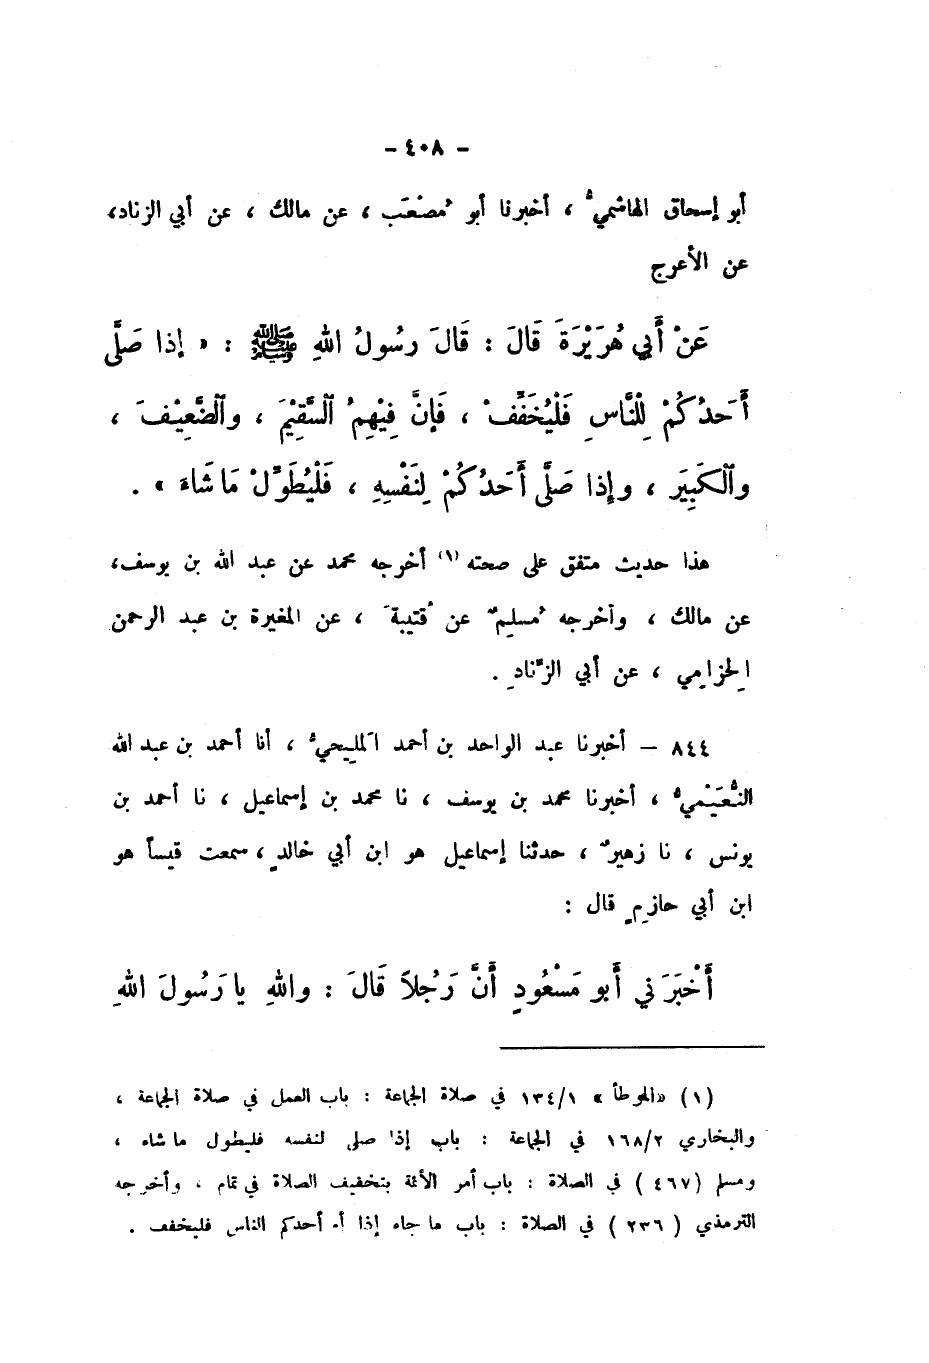 - ٤٠٨ -
أبو إسحاق الهاشميُّ ، أخبرنا أبو مُصْعَب ، عن مالك ، عن أبي الزناد،
عن الأعرج
عَنْ أَبِي هُرَيْرَةَ قَالَ : قَالَ رَسُولُ اللهِ ﷺ : « إذا صَلَّى
أَحَدُكُمْ لِلْنَّاسِ فَلْيُخَفِّفْ ، فَإِنَّ فِيْهِمُ ٱلسَّقِيْمَ ، وٱلضَّعِيْفَ ،
وٱلكَبِيَر ، وإذا صَلَّى أَحَدُكُمْ لِنَفْسِهِ ، فَلْيُطَوِّلْ مَا شَاءَ » .
هذا حديث متفق على صحته (١) أخرجه محمد عن عبد الله بن يوسف،
عن مالك ، وأخرجه مُسلِمٌ عن قُتيبةَ ، عن المغيرة بن عبد الرحمن
الحِزامِي ، عن أبي الزِّنادِ .
٨٤٤ – أخبرنا عبد الواحد بن أحمد المَلِيحيُّ ، أنا أحمد بن عبد الله
النُّعَيْمِيُّ ، أخبرنا محمد بن يوسف ، نا محمد بن إسماعيل ، نا أحمد بن
يونس ، نا زهيرٌ ، حدثنا إسماعيل هو ابن أبي خالدٍ ، سمعت قيساً هو
ابن أبي حازِمٍ قال :
أَخْبَرَنِي أَبو مَسْعُودٍ أَنَّ رَجُلاً قَالَ : واللهِ يا رَسُولَ اللهِ
(١) «الموطأ » ١٣٤/١ في صلاة الجماعة : باب العمل في صلاة الجماعة ،
والبخاري ١٦٨/٢ في الجماعة : باب إذا صلى لنفسه فليطول ما شاء ،
ومسلم (٤٦٧ ) في الصلاة : باب أمر الأئمة بتخفيف الصلاة في تمام ، وأخرجه
الترمذي ( ٢٣٦ ) في الصلاة : باب ما جاء إذا أم أحدكم الناس فليخفف .